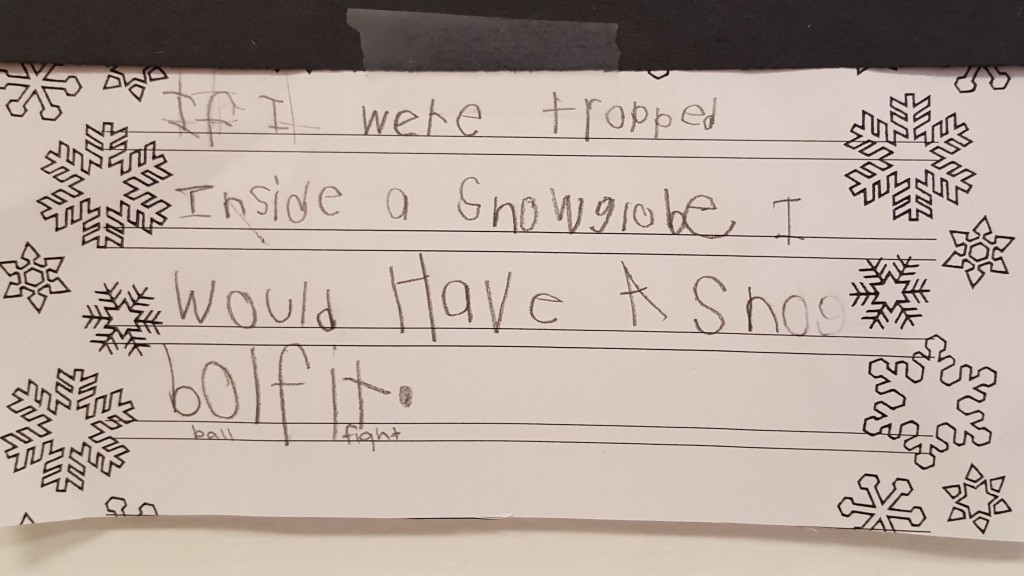 If I were tropped
Inside a Snowglobe I
Would Have A Snoo
bolf it.
ball fight